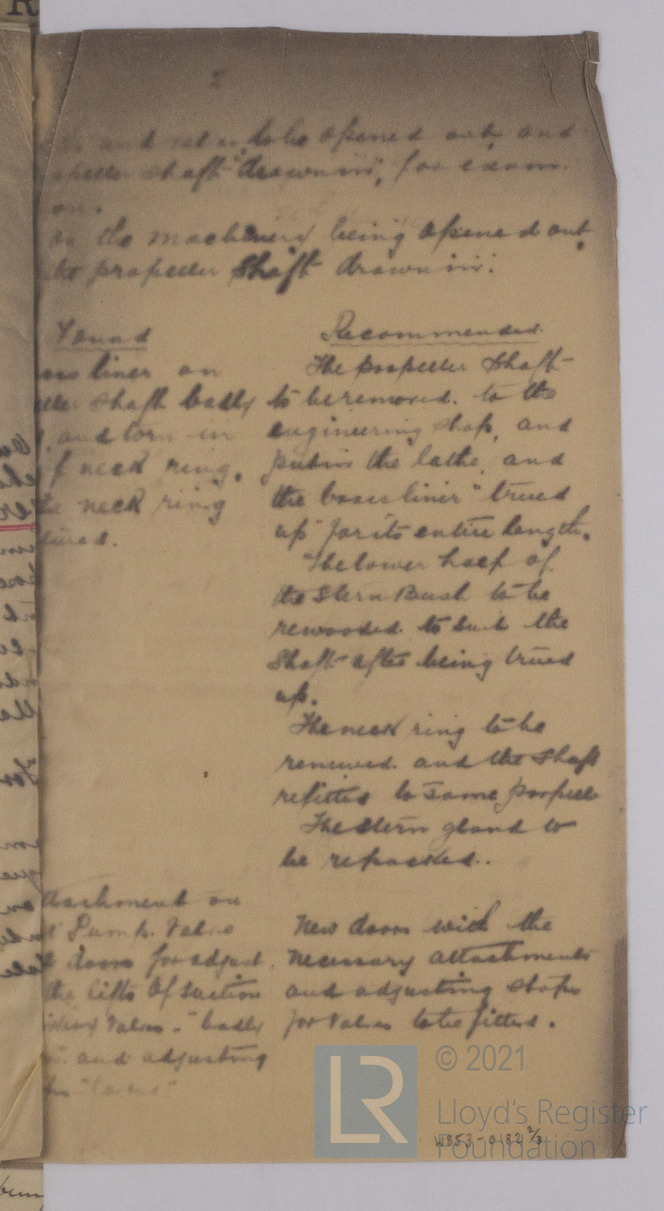 2
and to be opened out, and
shaft "drawn in", for exam
on.
on the machinery being opened out,
the propeller shaft drawn in:
Found
liner on
shaft badly
and torn in
f neck ring.
neck ring
tured.
Recommended.
The propeller shaft
to be removed. to the
engineering shop, and
put in the lathe, and
the brass liner "trued
up" for its entire length.
The lower half of
the Stern Bush to be
rewooded. to suit the
shaft after being trued
up.
The neck ring to be
renewed. and the shaft
refitted to same propell
The stern gland to
be repacked..
tachment on
Pump. Valve
doors for adjust.
the lifts of suction
Valves - "badly
and adjusting
"loose"
New doors with the
necessary attachments
and adjusting stops
for valves to be fitted.
R
LR
© 2021
Lloyd's Register
Foundation
W853-0182 2/3